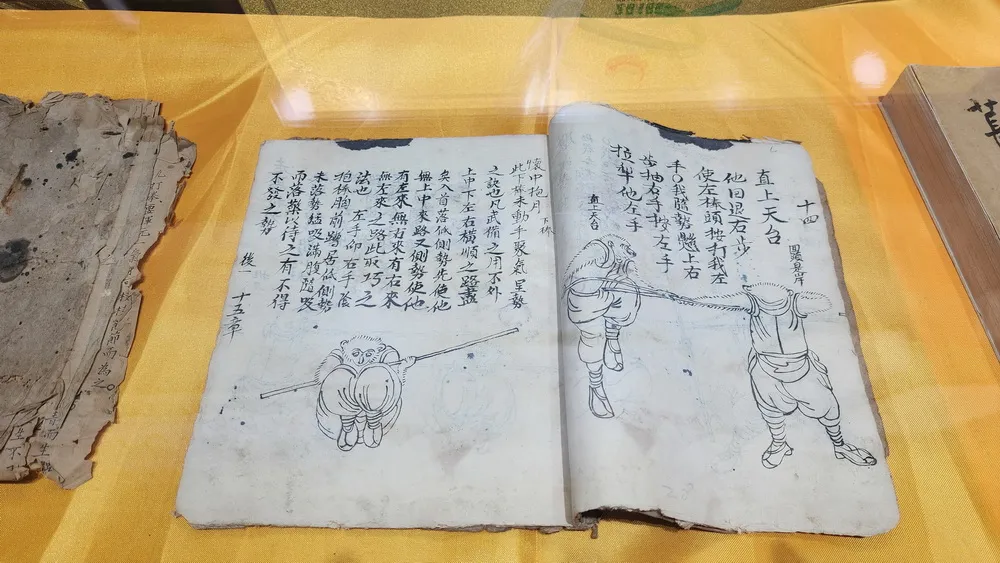 十四
直上天台
他回退右步
使左棒頭按打我左
手○我騰勢懸上右
步抽右手按左手
拉犁他左手
直上天台
懷中抱月
下棒
此下棒未動手聚氣呈勢
之訣也凡武備之用不外
上中下左右橫順之路盡
矣入首落低側勢先使他
無上中來路又側勢使他
有左來無右來有右來
無左來之路此取巧之
法也 左手仰右手陰
抱棒胸前蹲居低側勢
未落勢猛吸滿腹隨吸
而落築以待之有不得
不發之勢
後一
十五章
而為之。